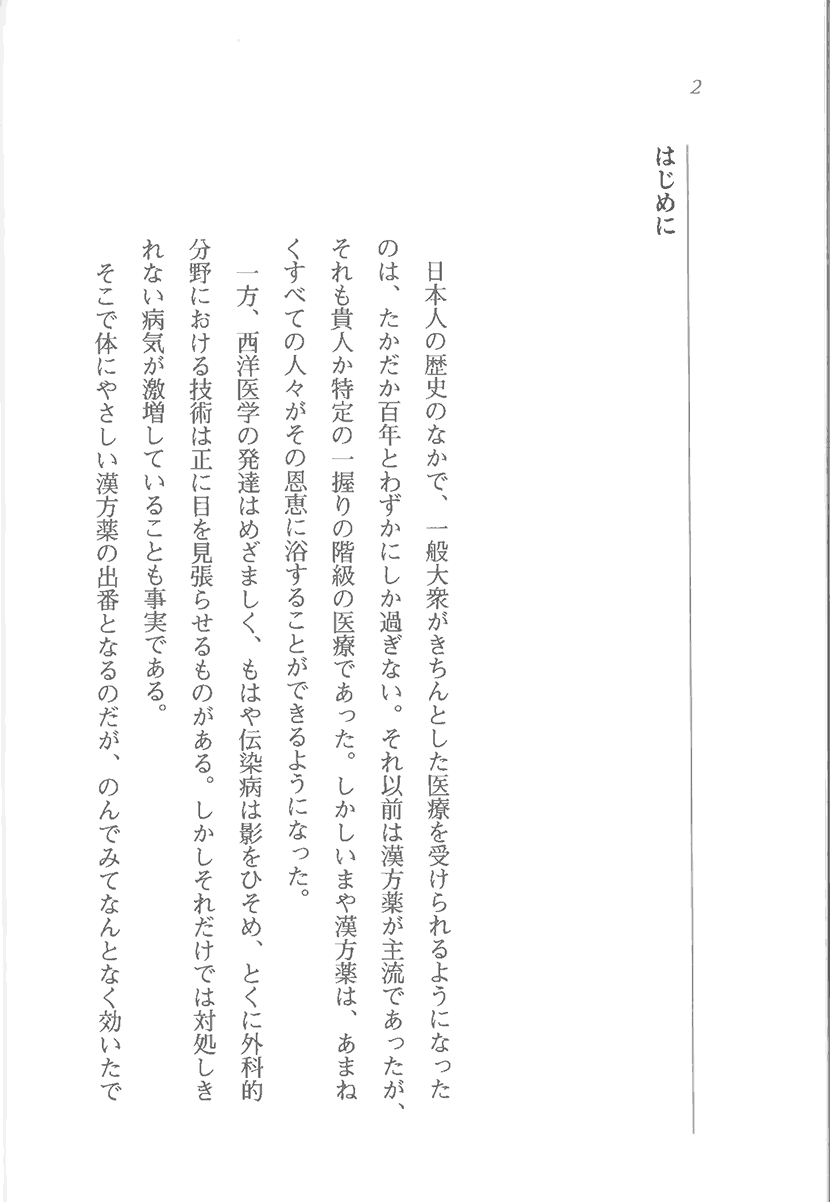 2
はじめに
日本人の歴史のなかで、一般大衆がきちんとした医療を受けられるようになった
のは、たかだか百年とわずかにしか過ぎない。それ以前は漢方薬が主流であったが、
それも貴人か特定の一握りの階級の医療であった。しかしいまや漢方薬は、あまね
くすべての人々がその恩恵に浴することができるようになった。
一方、西洋医学の発達はめざましく、もはや伝染病は影をひそめ、とくに外科的
分野における技術は正に目を見張らせるものがある。しかしそれだけでは対処しき
れない病気が激増していることも事実である。
そこで体にやさしい漢方薬の出番となるのだが、のんでみてなんとなく効いたで